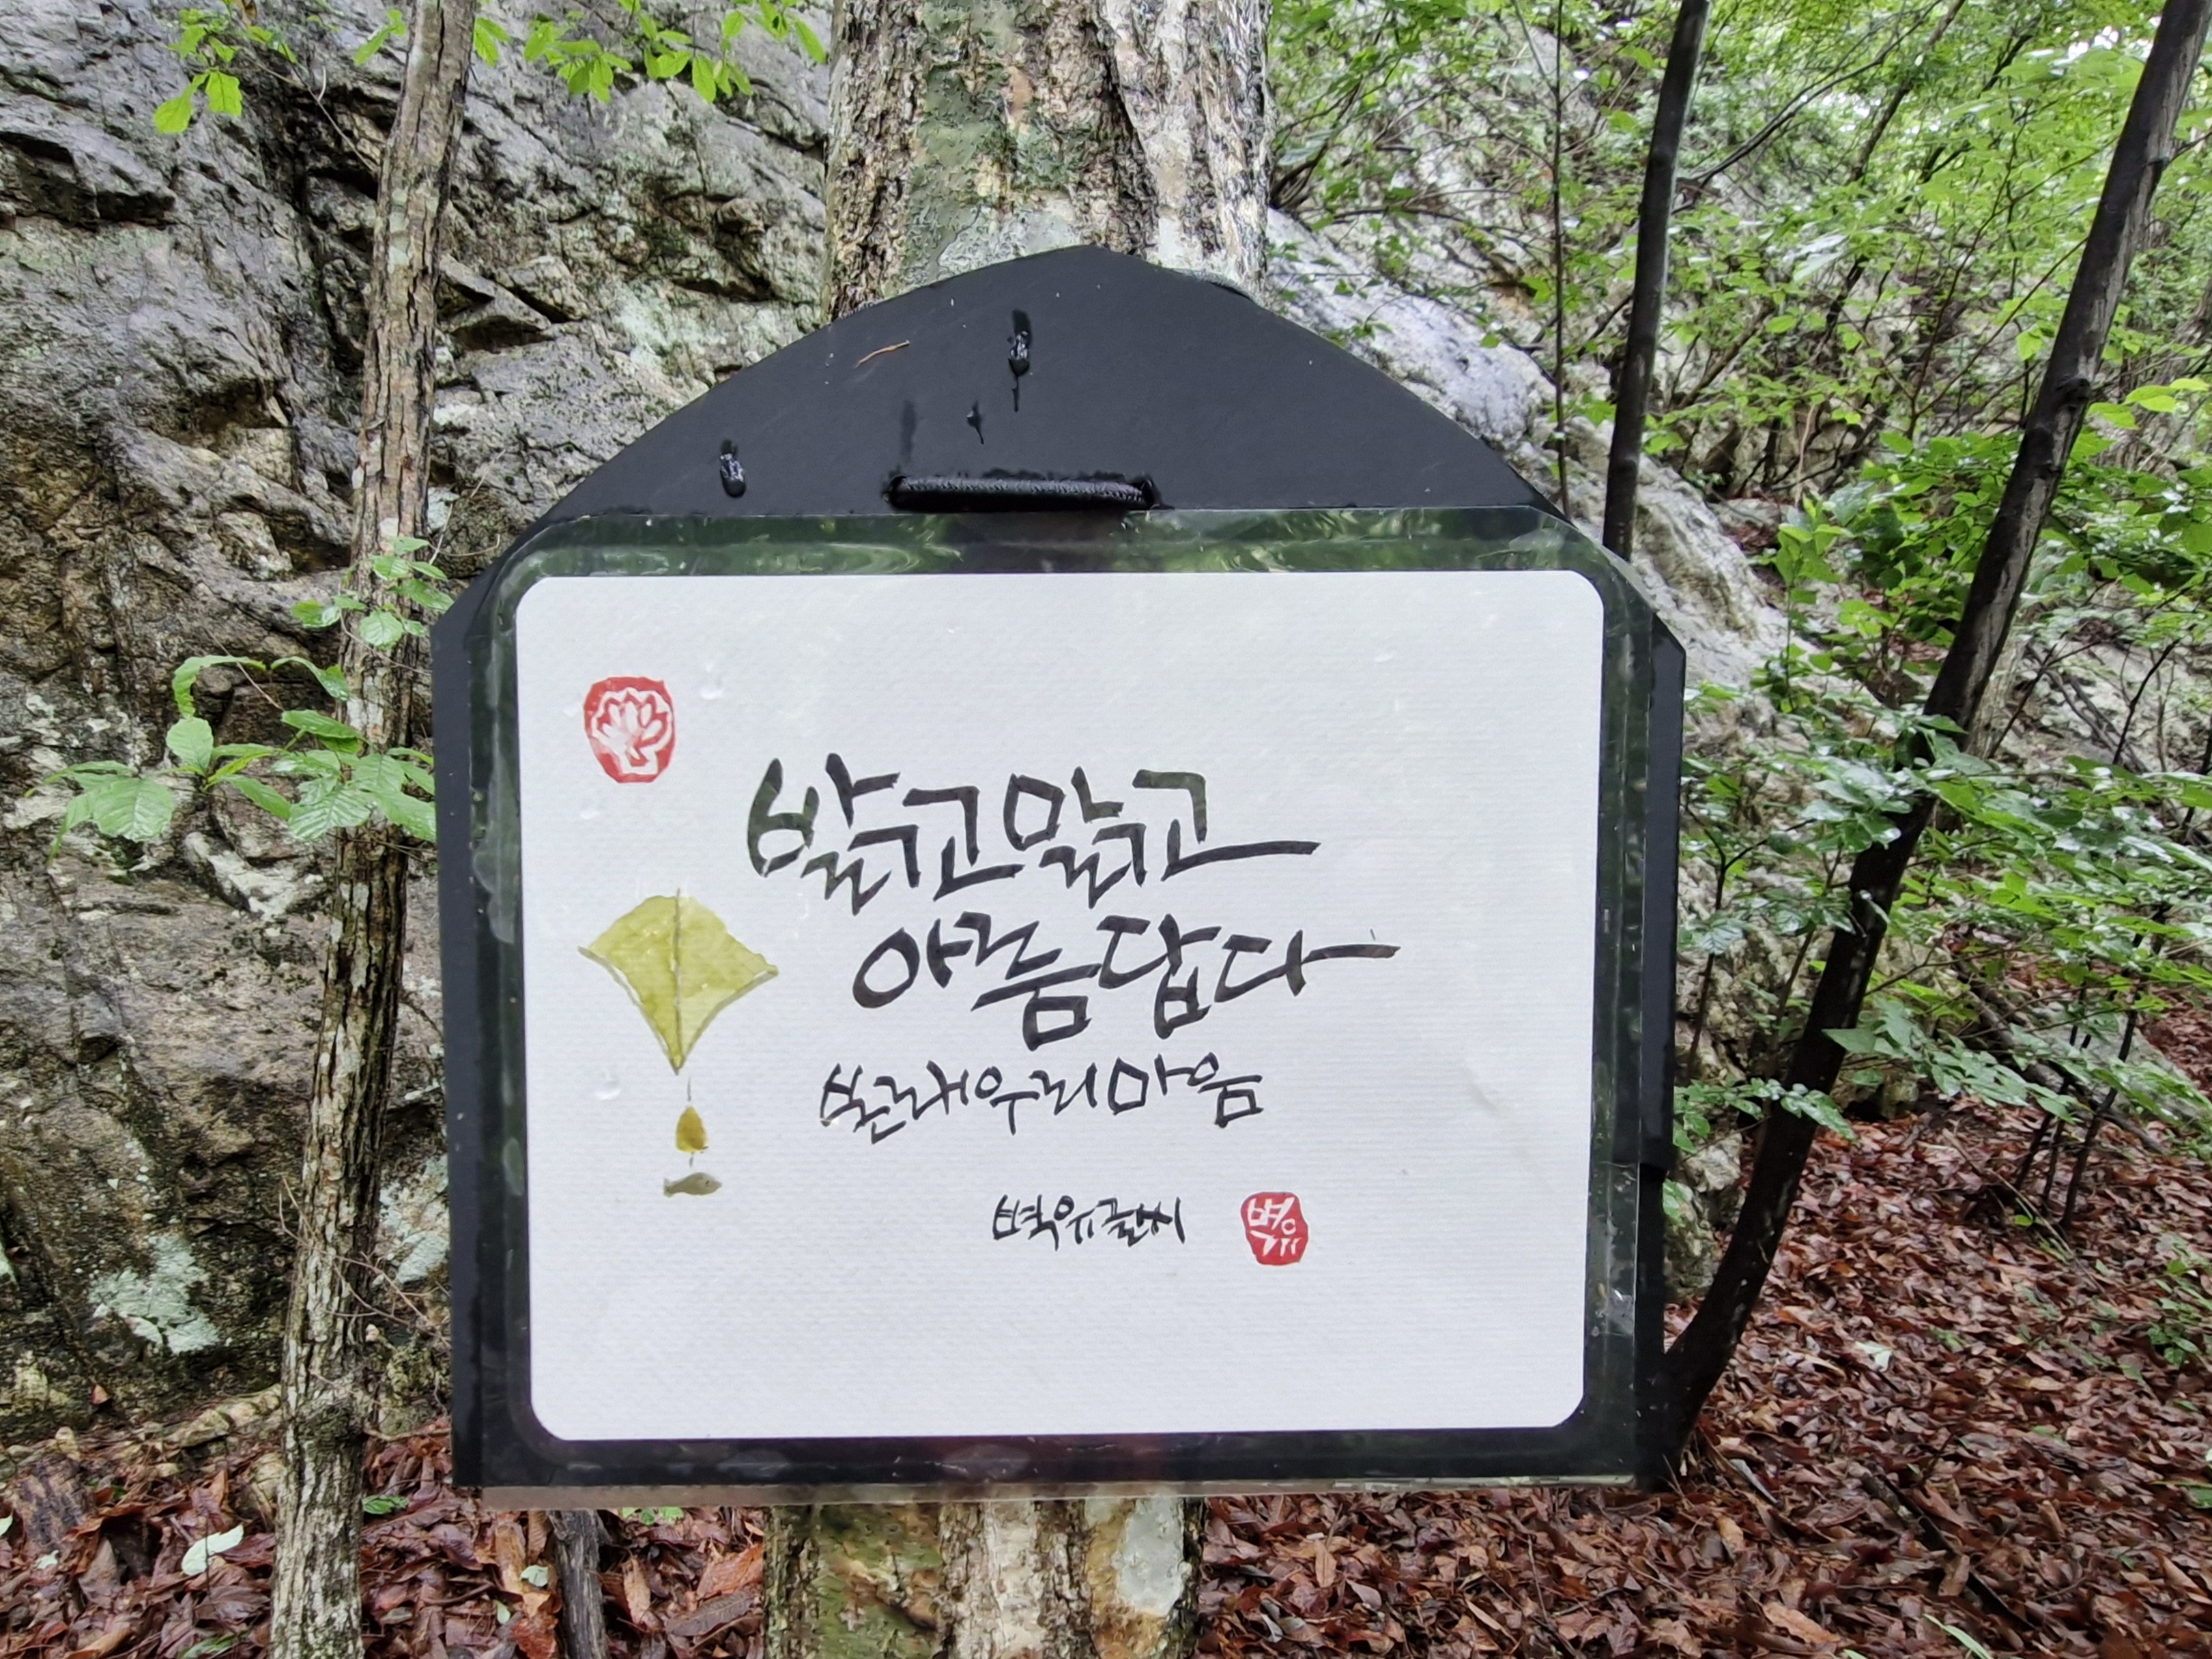 밝고맑고
아름답다
본래우리마음
벽유글씨
벽유